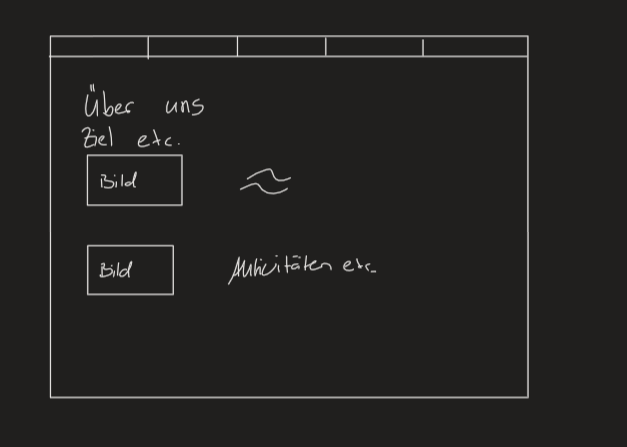 Über uns
Ziel etc.
Bild
Bild
Aktivitäten etc.